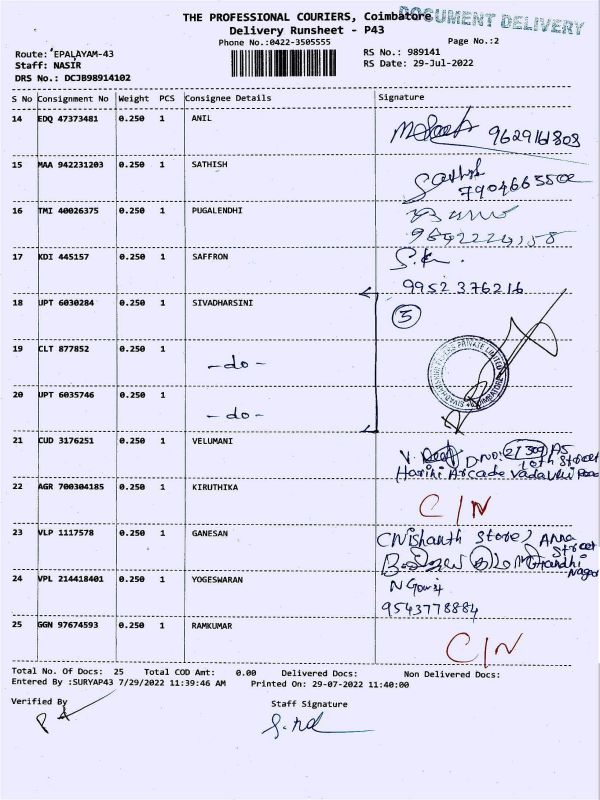 THE PROFESSIONAL COURIERS, Coimbatore
DOCUMENT DELIVERY
Delivery Runsheet - P43
Phone No.:0422-3505555
Page No.:2
Route: EPALAYAM-43
RS No.: 989141
Staff: NASIR
RS Date: 29-Jul-2022
DRS No.: DCJB98914102
S No Consignment No Weight PCS Consignee Details Signature
14 EDQ 47373481 0.250 1 ANIL
9629161808
15 MAA 942231203 0.250 1 SATHISH
Sathish
7904665502
16 TMI 40026375 0.250 1 PUGALENDHI
17 KDI 445157 0.250 1 SAFFRON
S.K.
9952376216
18 UPT 6030284 0.250 1 SIVADHARSINI
5
19 CLT 877852 0.250 1
-do-
PRIVATE LIMITED
COIMBATORE
20 UPT 6035746 0.250 1
-do-
21 CUD 3176251 0.250 1 VELUMANI
V. D.NO: 21/309 A5
10th Street
Harini Arcade Vadavalli Road
22 AGR 700304185 0.250 1 KIRUTHIKA
C/N
23 VLP 1117578 0.250 1 GANESAN
C Nishanth Store, Anna
Street
Gandhi
Nagar
24 VPL 214418401 0.250 1 YOGESWARAN
N Gowri
9543778884
25 GGN 97674593 0.250 1 RAMKUMAR
C/N
Total No. Of Docs: 25 Total COD Amt: 0.00 Delivered Docs: Non Delivered Docs:
Entered By :SURYAP43 7/29/2022 11:39:46 AM Printed On: 29-07-2022 11:40:00
Verified By
Staff Signature